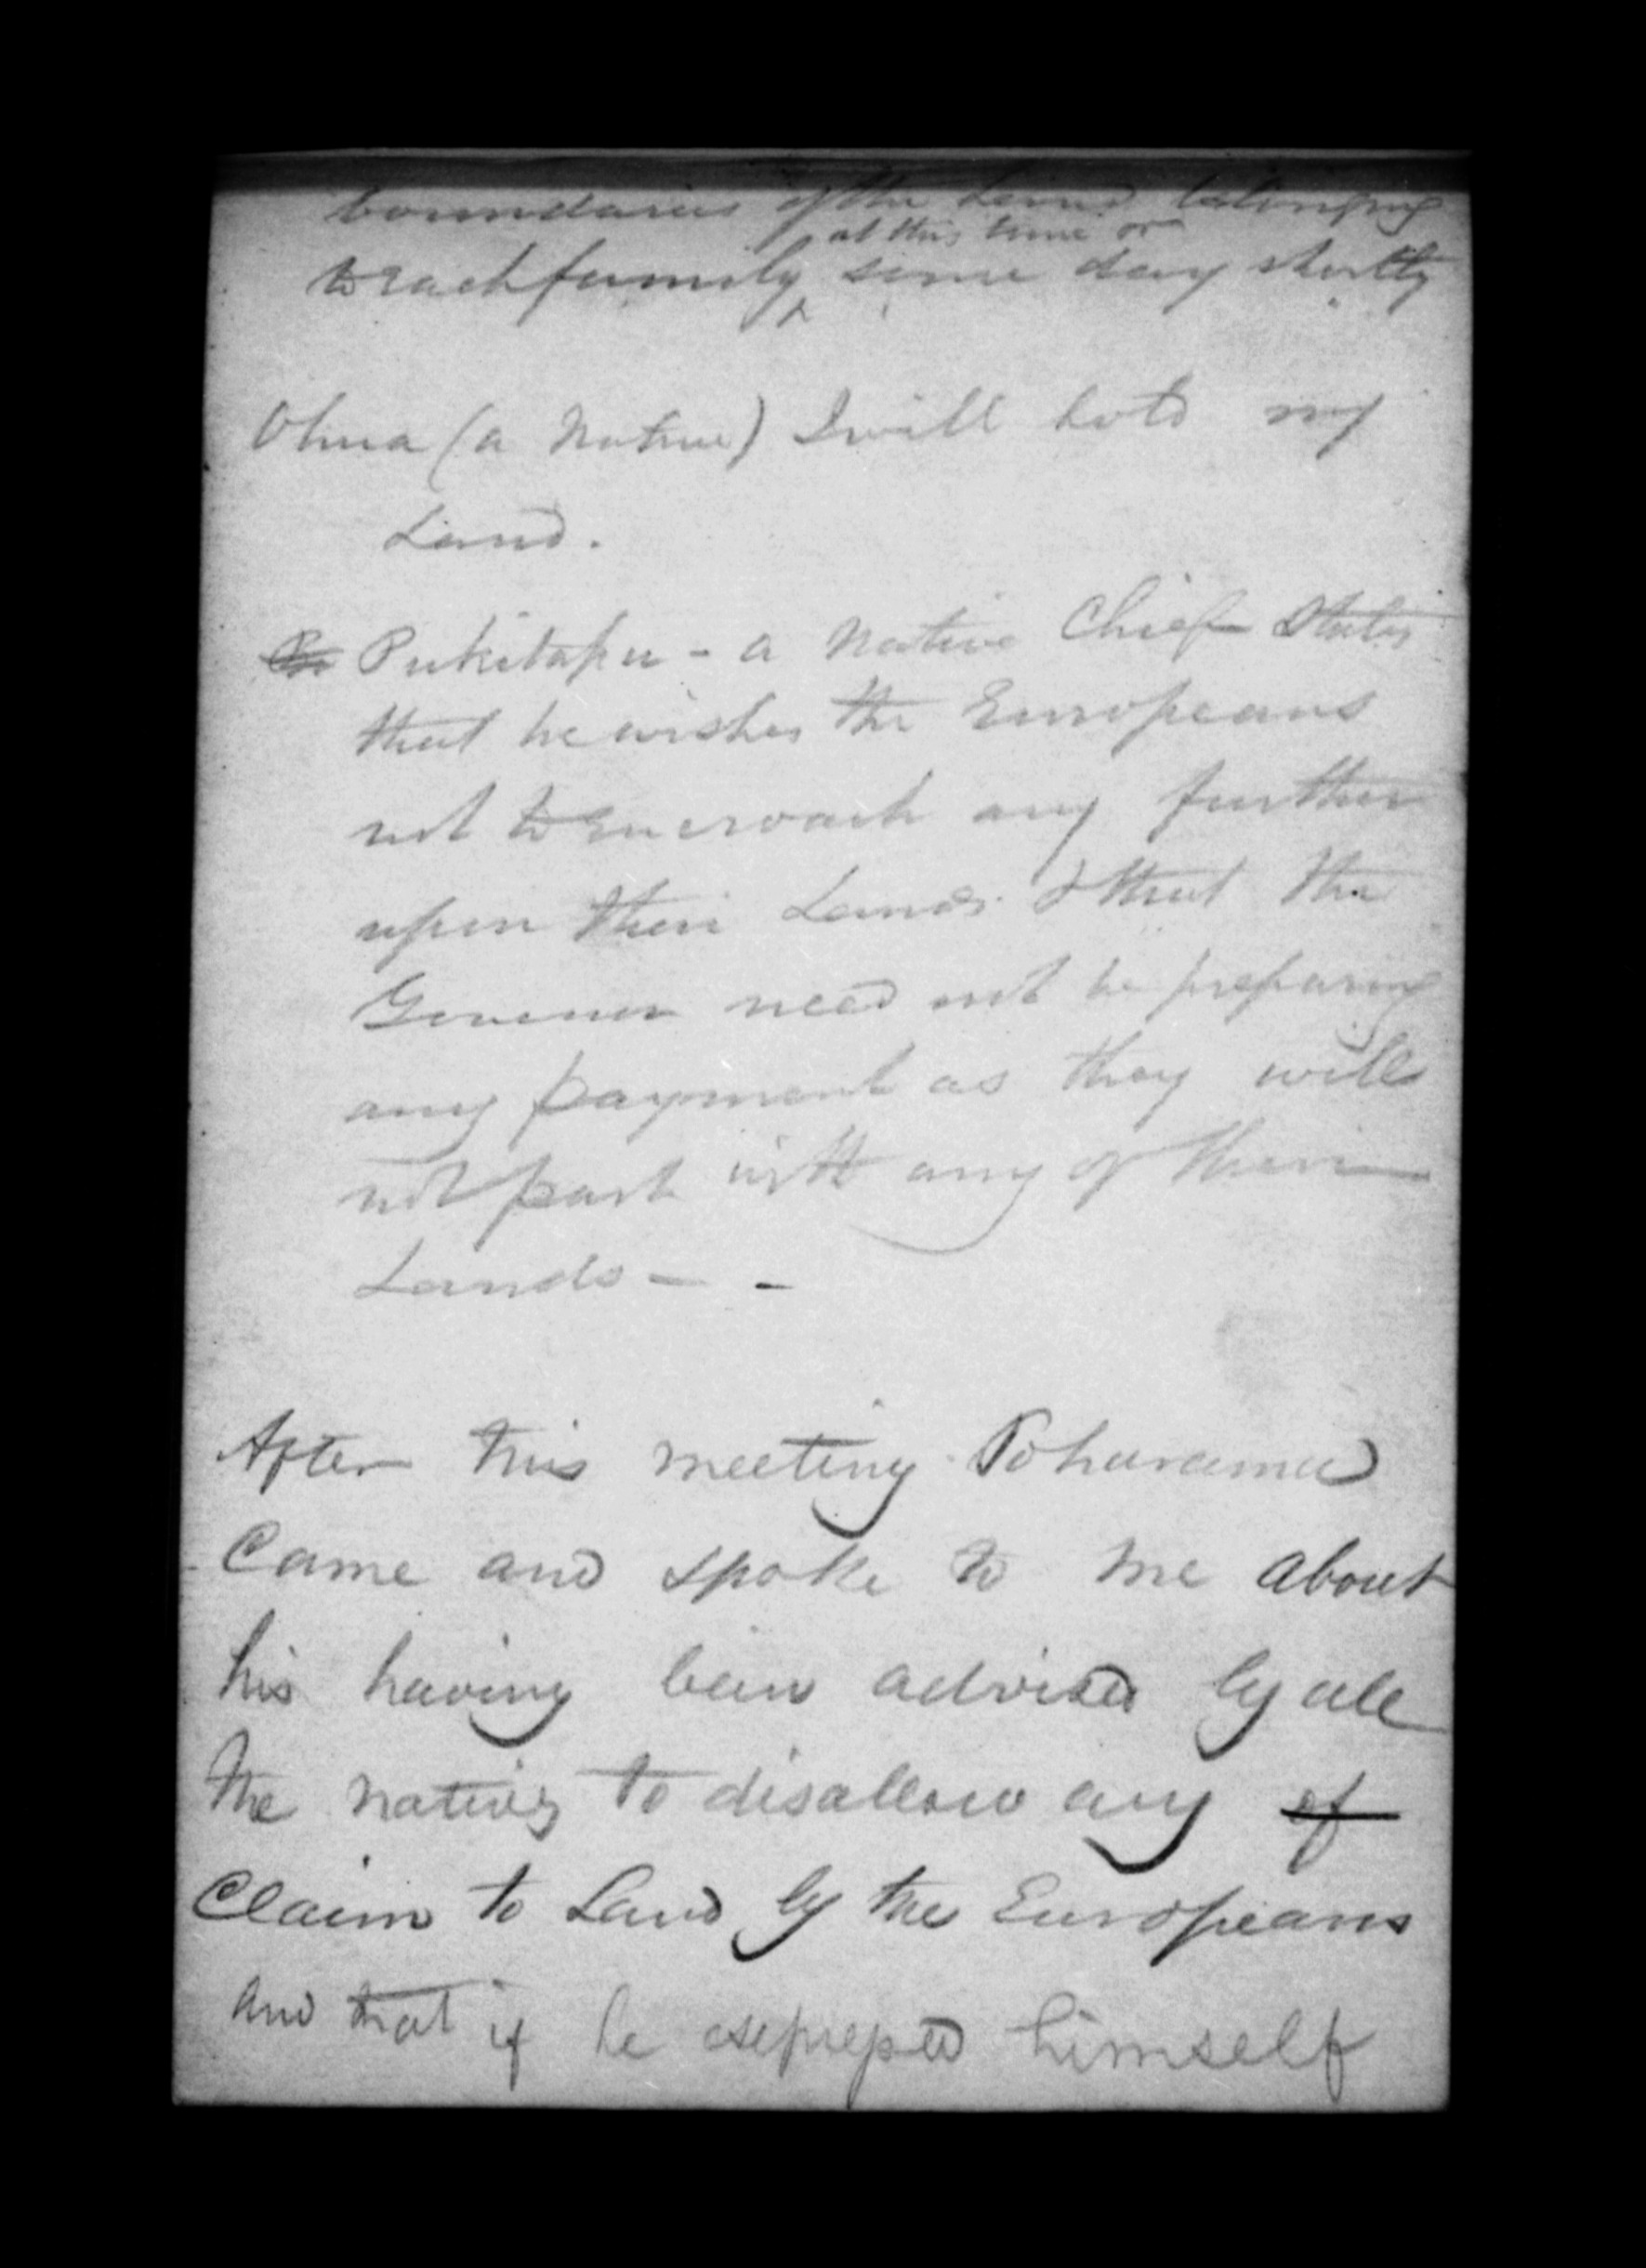 boundaries of the Land belonging
at this time or
to each family some day shortly
Ohua (a Native) I will hold my
Land.
Pukitapu - a Native Chief States
that he wishes the Europeans
not to encroach any further
upon their Lands & that the
Governor need not be preparing
any payment as they will
not part with any of their
Lands - -
After this meeting Poharama
Came and spoke to me about
his having been advised by all
the natives to disallow any of
Claim to Land by the Europeans
and that if he expressed himself